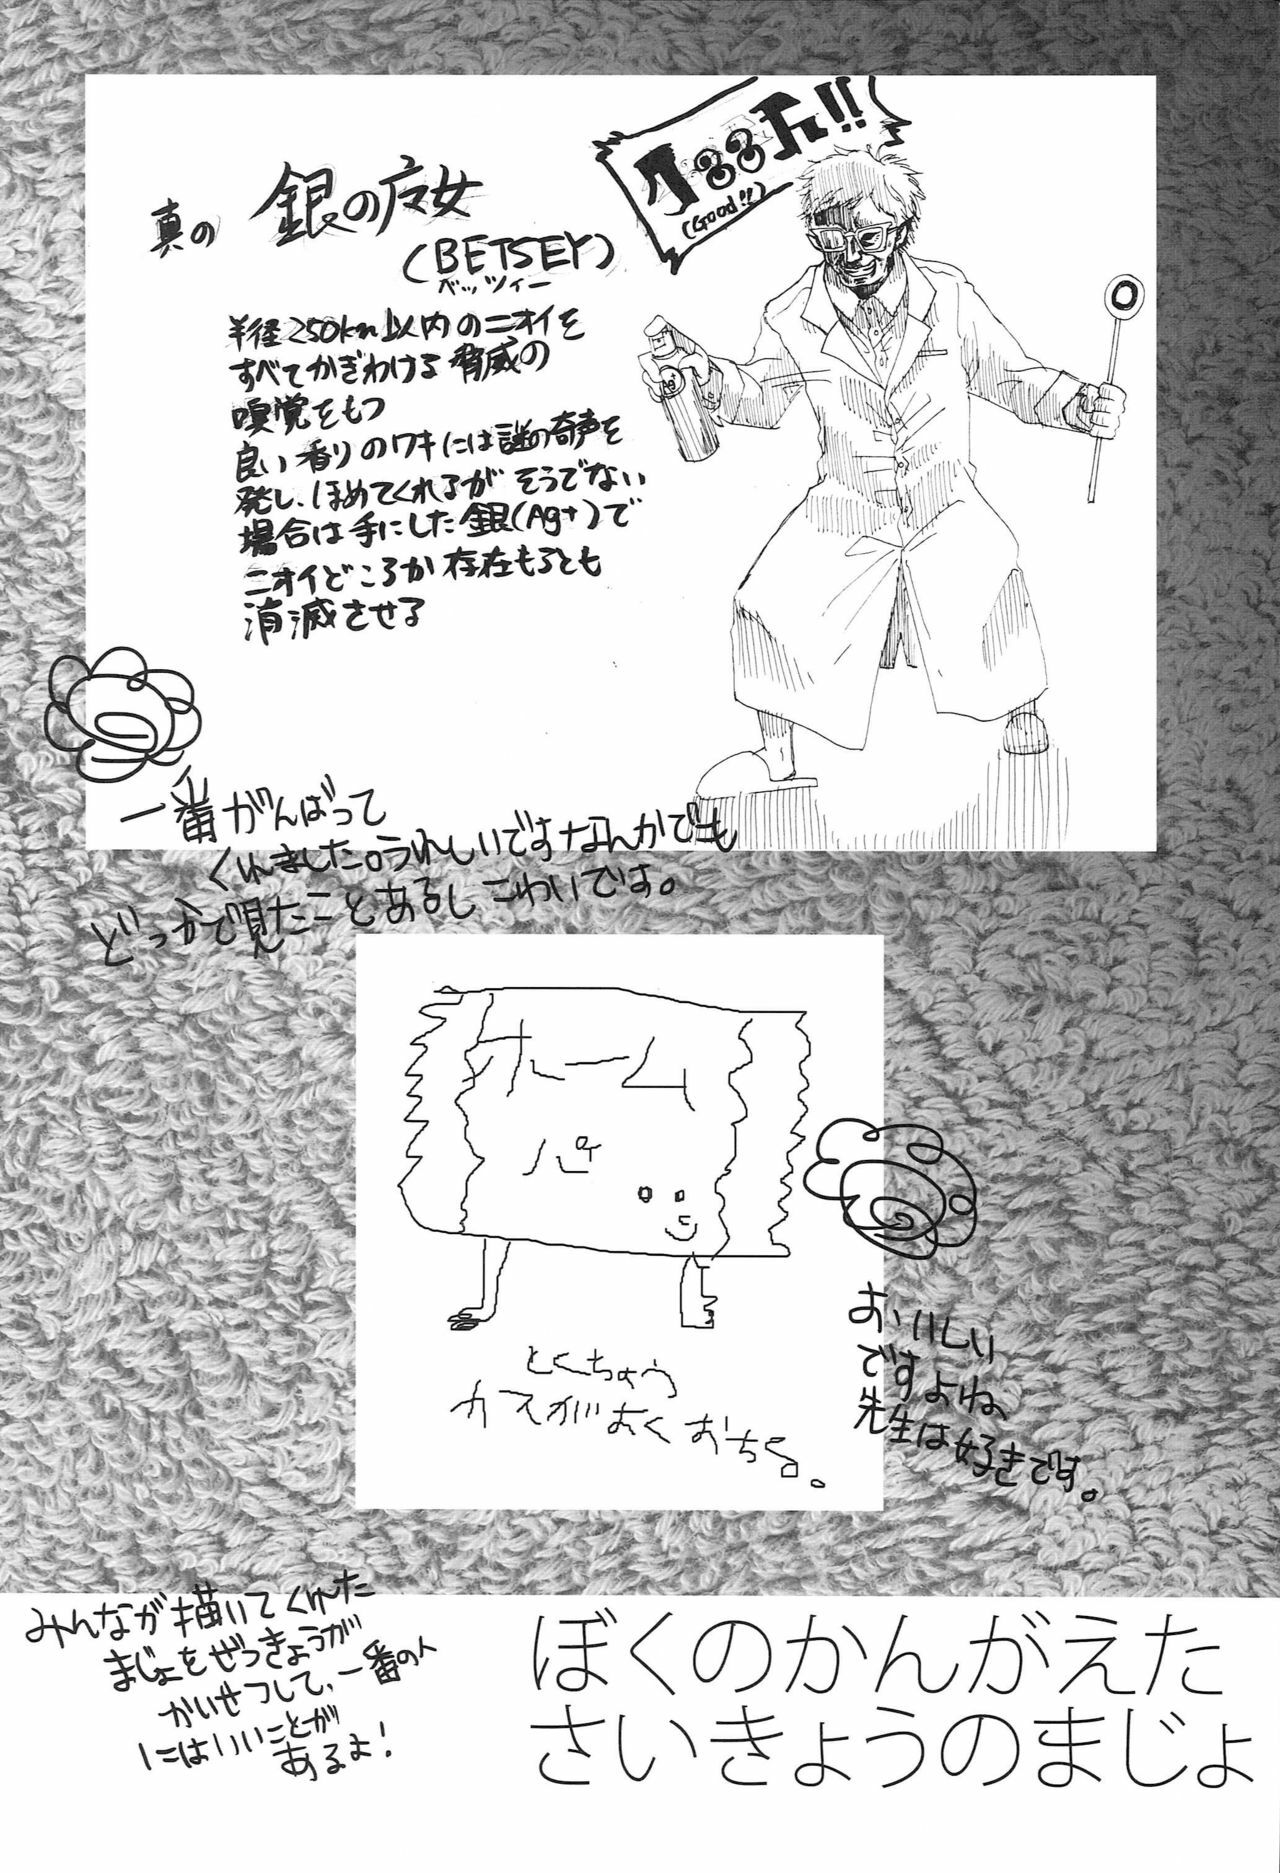 グッド!!
(Good!!)
真の 銀の魔女
(BETSEY)
ベッツィー
半径250km以内のニオイを
すべてかぎわける脅威の
嗅覚をもつ
良い香りのワキには謎の奇声を
発し、ほめてくれるが そうでない
場合は手にした銀(Ag+)で
ニオイどころか存在もろとも
消滅させる
Ag+
一番がんばって
くれました。うれしいですなんかでも
どっかで見たことあるしこわいです。
ホーム
パイ
とくちょう
カスがおくおちる。
おいしい
ですよね、
先生は好きです。
みんなが描いてくれた
まじょをぜっきょうが
かいせつして、一番の人
にはいいことが
あるよ!
ぼくのかんがえた
さいきょうのまじょ